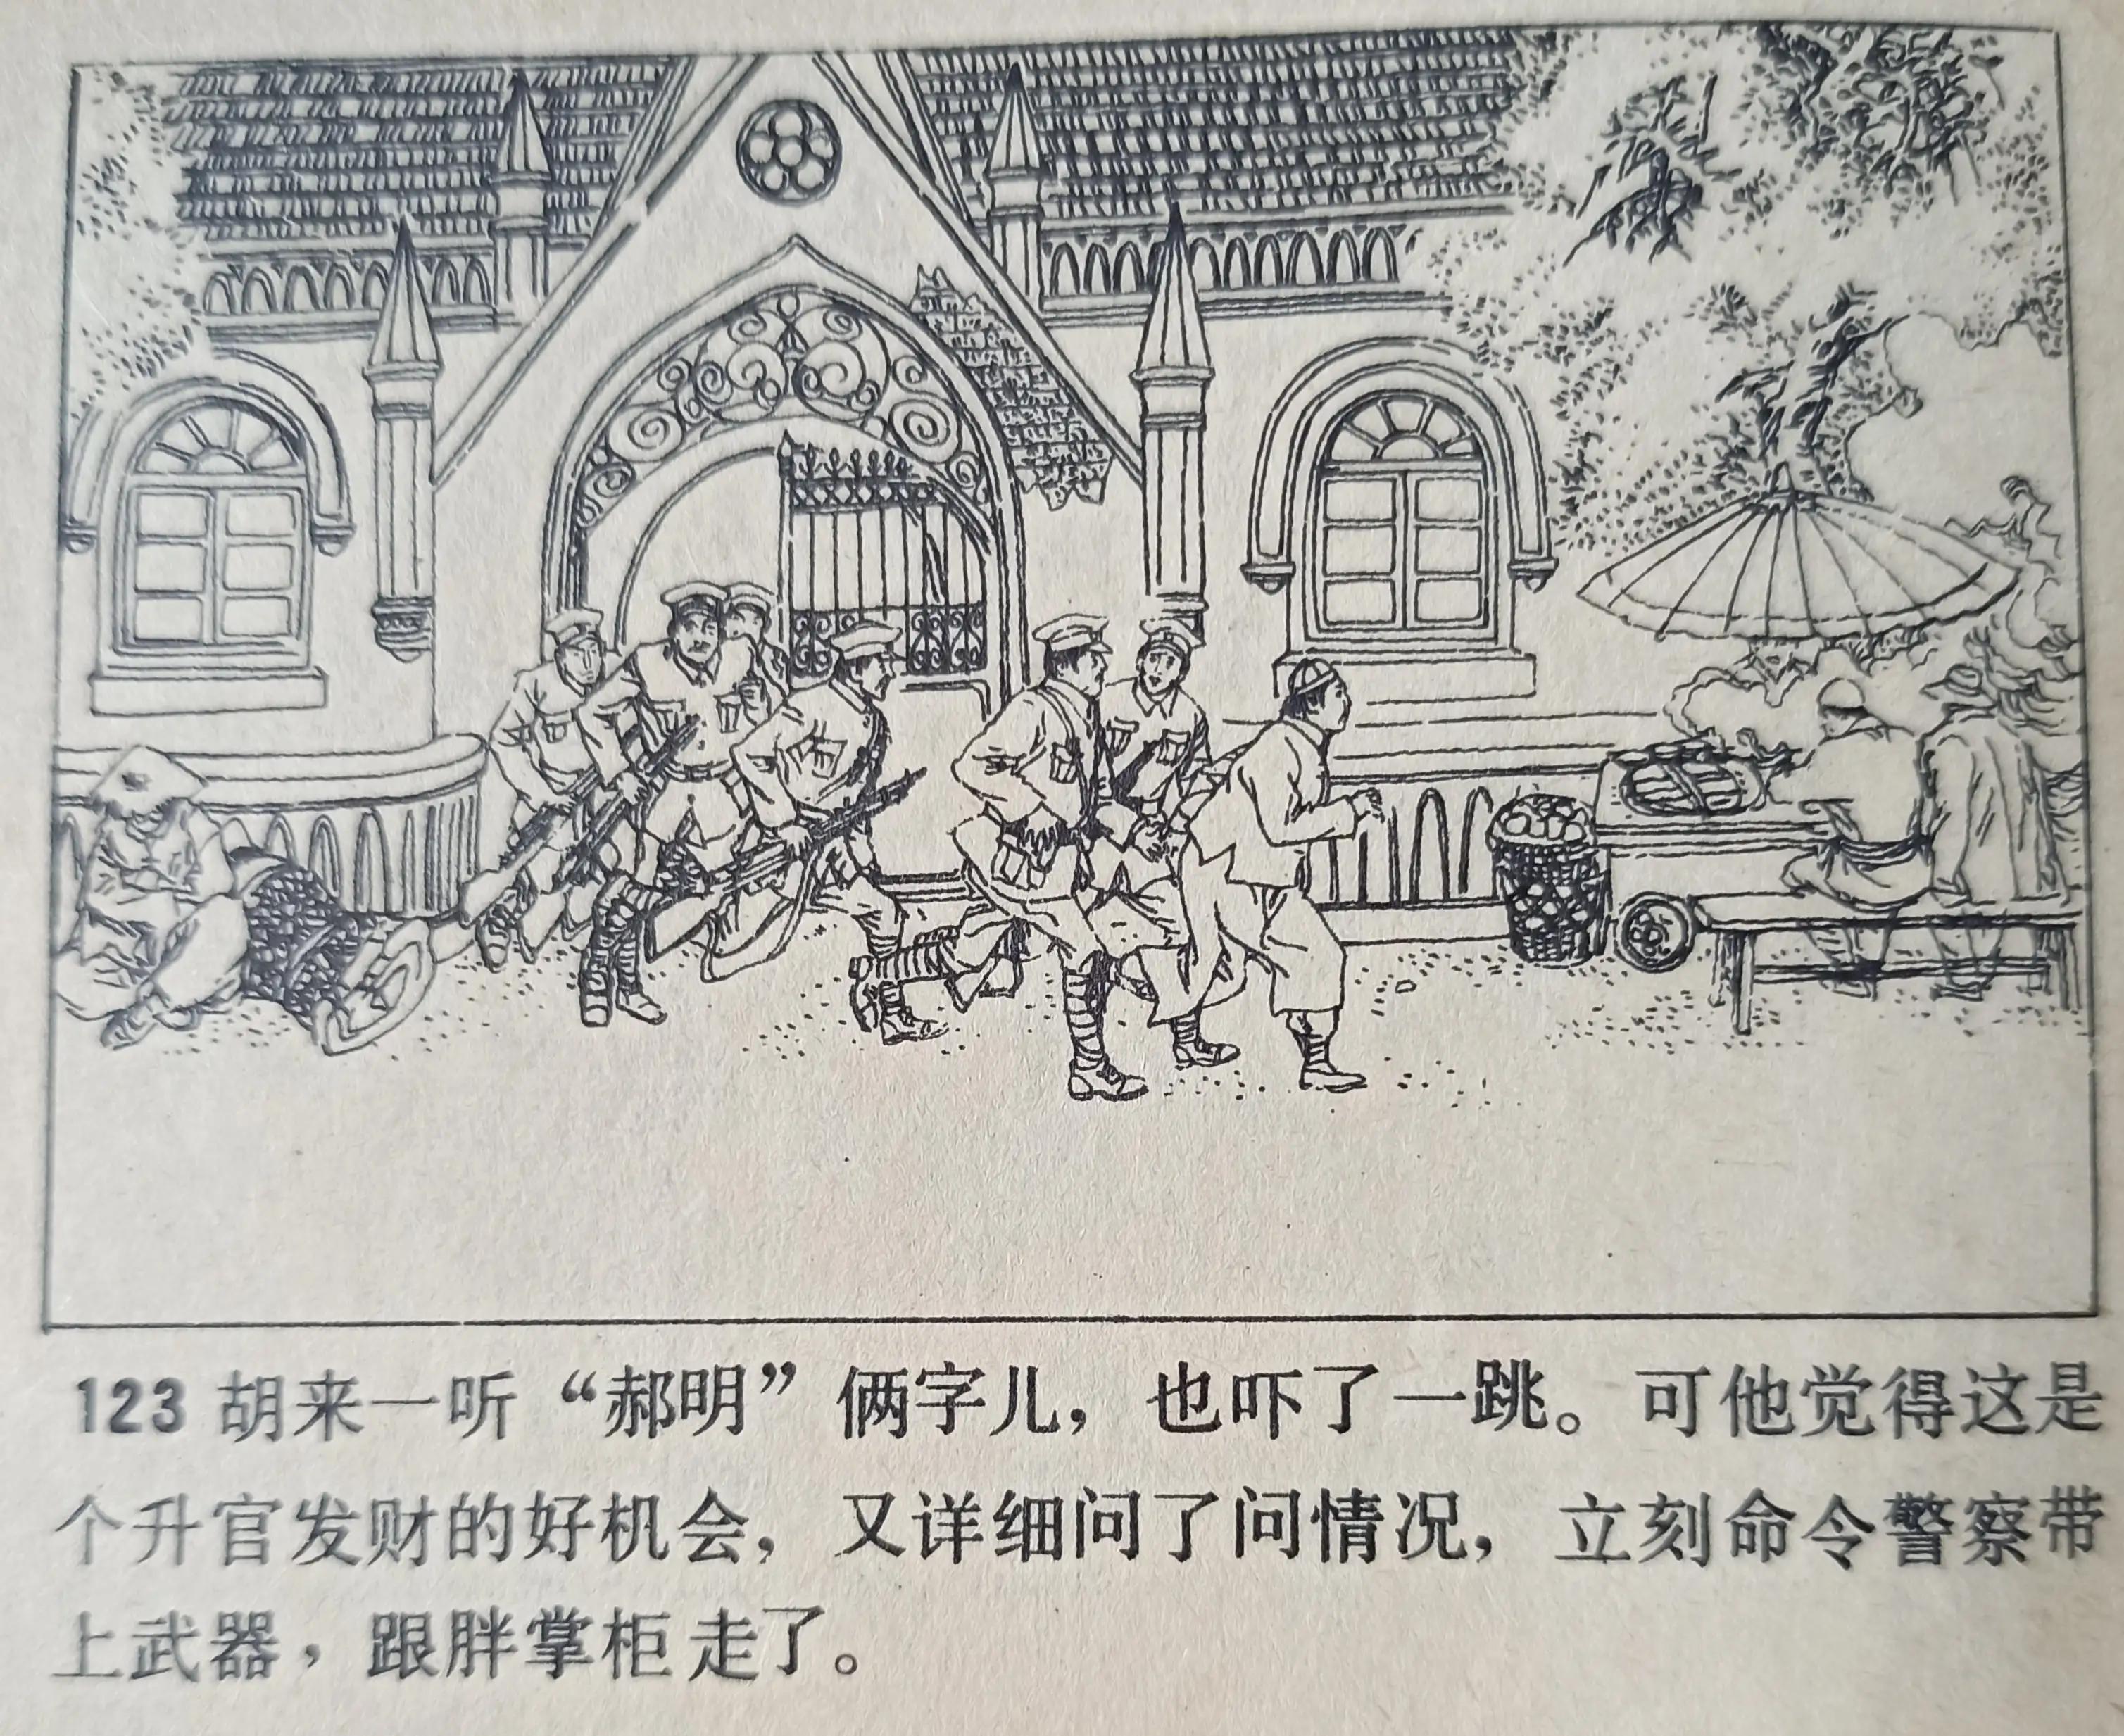 123 胡来一听“郝明”俩字儿，也吓了一跳。可他觉得这是
个升官发财的好机会，又详细问了问情况，立刻命令警察带
上武器，跟胖掌柜走了。